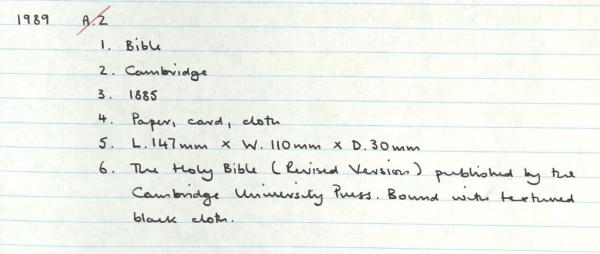 1989 A.2
1. Bible
2. Cambridge
3. 1885
4. Paper, card, cloth
5. L. 147mm × W. 110mm × D. 30mm
6. The Holy Bible (Revised Version) published by the
Cambridge University Press. Bound with textured
black cloth.